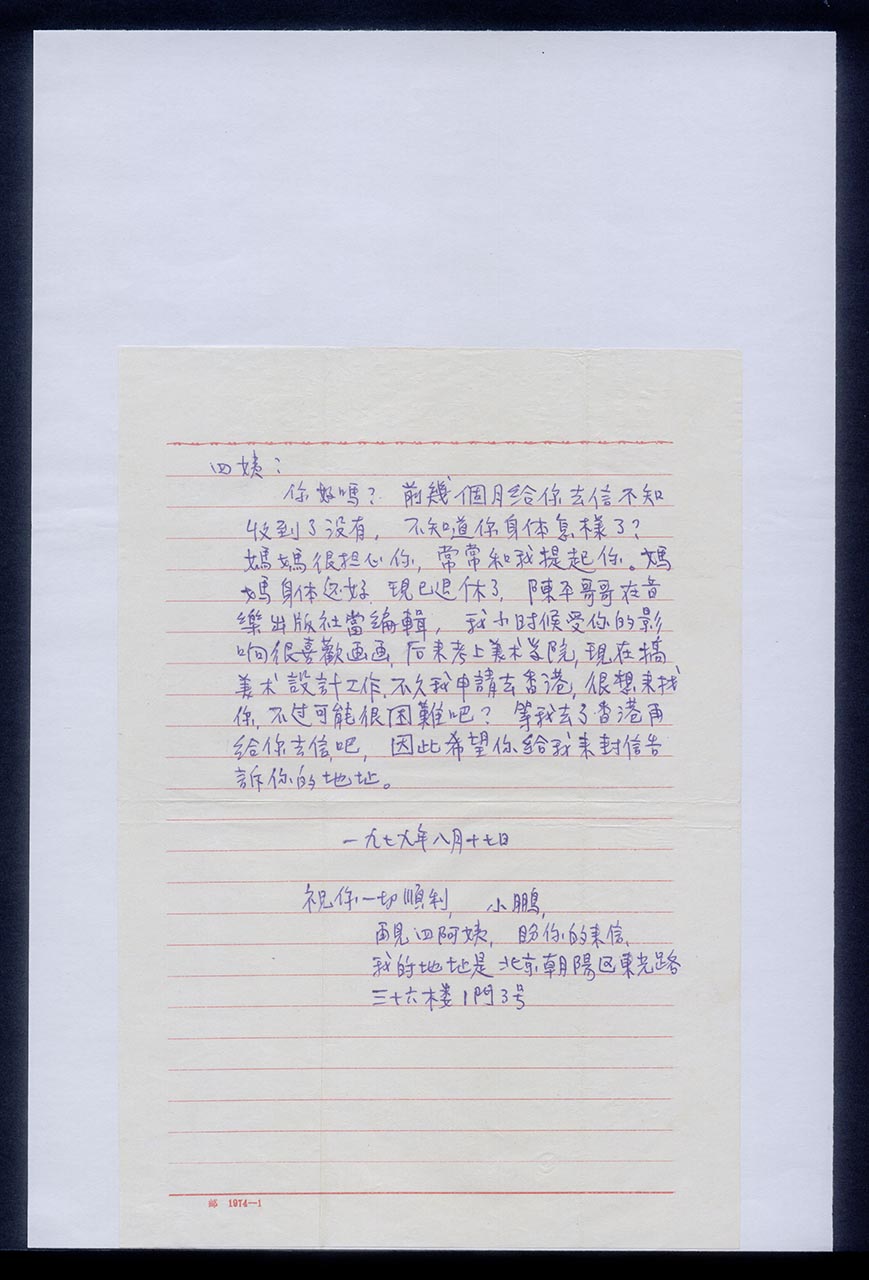 四姨：
你好嗎？前幾個月給你去信不知
收到了没有，不知道你身体怎樣了？
媽媽很担心你，常常和我提起你。媽
媽身体还好．現已退休了，陳平哥哥在音
樂出版社當編輯，我小时候受你的影
响很喜歡画画，后来考上美术学院，現在搞
美术設計工作，不久我申請去香港，很想来找
你，不过可能很困難吧？等我去了香港再
給你去信吧，因此希望你給我来封信告
訴你的地址。
一九七九年八月十七日
祝你一切順利，小鵬，
再見四阿姨，盼你的来信，
我的地址是北京朝陽区東光路
三十六楼1門3号
邮 1974—1